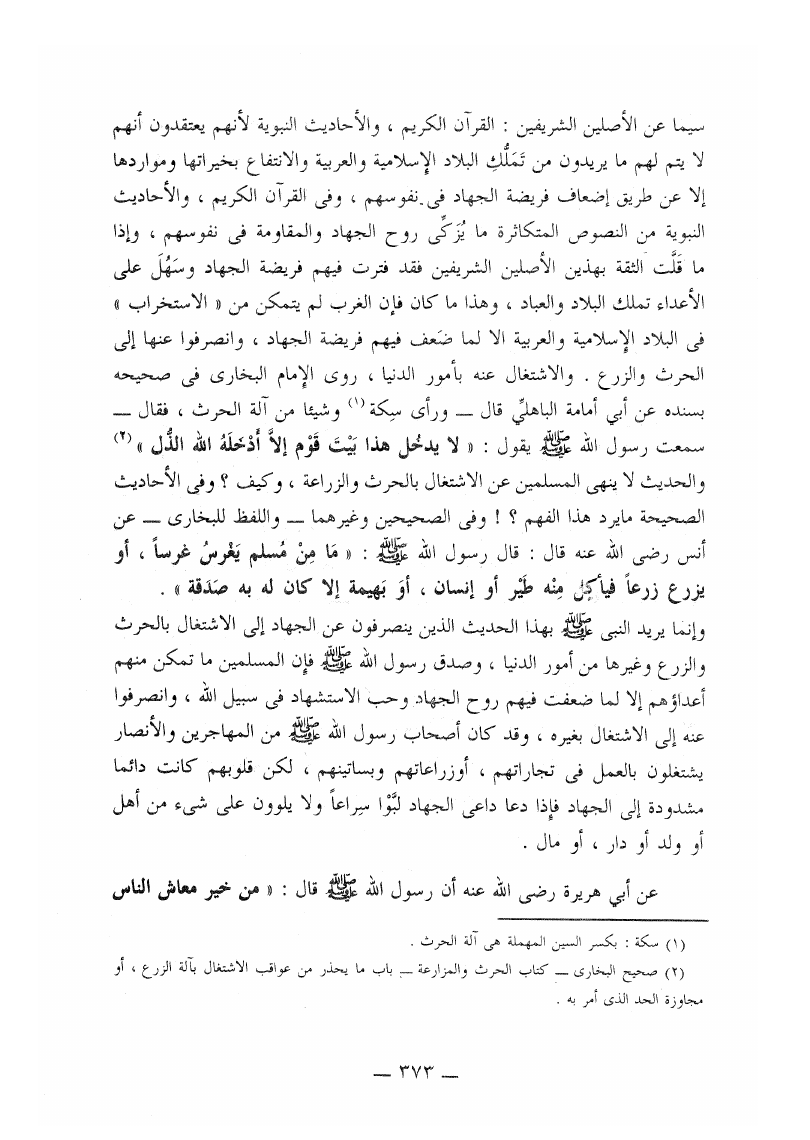 سيما عن الأصلين الشريفين : القرآن الكريم ، والأحاديث النبوية لأنهم يعتقدون أنهم
لا يتم لهم ما يريدون من تَمَلُّكِ البلاد الإسلامية والعربية والانتفاع بخيراتها ومواردها
إلا عن طريق إضعاف فريضة الجهاد فى نفوسهم ، وفى القرآن الكريم ، والأحاديث
النبوية من النصوص المتكاثرة ما يُزَكِّى روح الجهاد والمقاومة فى نفوسهم ، وإذا
ما قَلَّت الثقة بهذين الأصلين الشريفين فقد فترت فيهم فريضة الجهاد وسَهُلَ على
الأعداء تملك البلاد والعباد ، وهذا ما كان فإن الغرب لم يتمكن من « الاستخراب »
فى البلاد الإسلامية والعربية الا لما ضَعف فيهم فريضة الجهاد ، وانصرفوا عنها إلى
الحرث والزرع . والاشتغال عنه بأمور الدنيا ، روى الإمام البخارى فى صحيحه
بسنده عن أبي أمامة الباهليِّ قال ــ ورأى سِكة (١) وشيئا من آلة الحرث ، فقال ــ
سمعت رسول الله ﷺ يقول : « لا يدخُل هذا بَيْتَ قَوْم إلاَّ أَدْخَلَهُ الله الذُّل » (٢)
والحديث لا ينهى المسلمين عن الاشتغال بالحرث والزراعة ، وكيف ؟ وفى الأحاديث
الصحيحة مايرد هذا الفهم ؟ ! وفى الصحيحين وغيرهما ــ واللفظ للبخارى ــ عن
أنس رضى الله عنه قال : قال رسول الله ﷺ : « مَا مِنْ مُسلم يَغْرسُ غرساً ، أو
يزرع زرعاً فيأكل مِنْه طَيْر أو إنسان ، أوَ بَهيمة إلا كان له به صَدَقة » .
وإنما يريد النبى ﷺ بهذا الحديث الذين ينصرفون عن الجهاد إلى الاشتغال بالحرث
والزرع وغيرها من أمور الدنيا ، وصدق رسول الله ﷺ فإن المسلمين ما تمكن منهم
أعداؤهم إلا لما ضعفت فيهم روح الجهاد وحب الاستشهاد فى سبيل الله ، وانصرفوا
عنه إلى الاشتغال بغيره ، وقد كان أصحاب رسول الله ﷺ من المهاجرين والأنصار
يشتغلون بالعمل فى تجاراتهم ، أوزراعاتهم وبساتينهم ، لكن قلوبهم كانت دائما
مشدودة إلى الجهاد فإذا دعا داعى الجهاد لبَّوْا سِراعاً ولا يلوون على شىء من أهل
أو ولد أو دار ، أو مال .
عن أبي هريرة رضى الله عنه أن رسول الله ﷺ قال : « من خير معاش الناس
(١) سكة : بكسر السين المهملة هى آلة الحرث .
(٢) صحيح البخارى ــ كتاب الحرث والمزارعة ــ باب ما يحذر من عواقب الاشتغال بآلة الزرع ، أو
مجاوزة الحد الذى أمر به .
ــ ٣٧٣ ــ